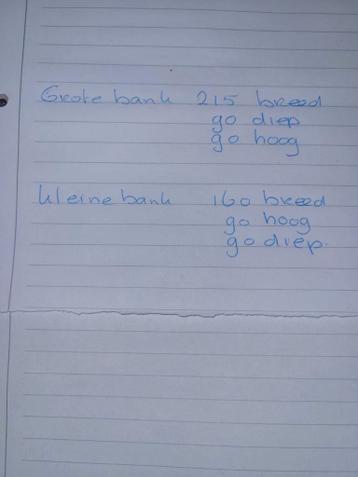 Grote bank 215 breed
90 diep
90 hoog
kleine bank 160 breed
90 hoog
90 diep.